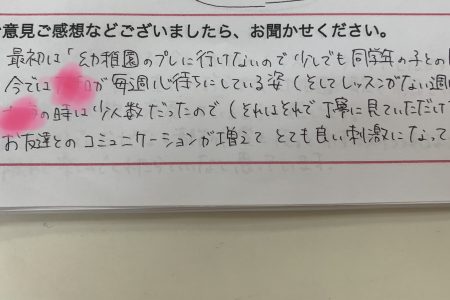 意見ご感想などございましたら、お聞かせください。
最初は「幼稚園のプレに行けないので少しでも同学年の子との
今では が毎週心待ちにしている姿(そしてレッスンがない週
の時は少人数だったので(それはそれで丁寧に見ていただけ
お友達とのコミュニケーションが増えてとても良い刺激になって